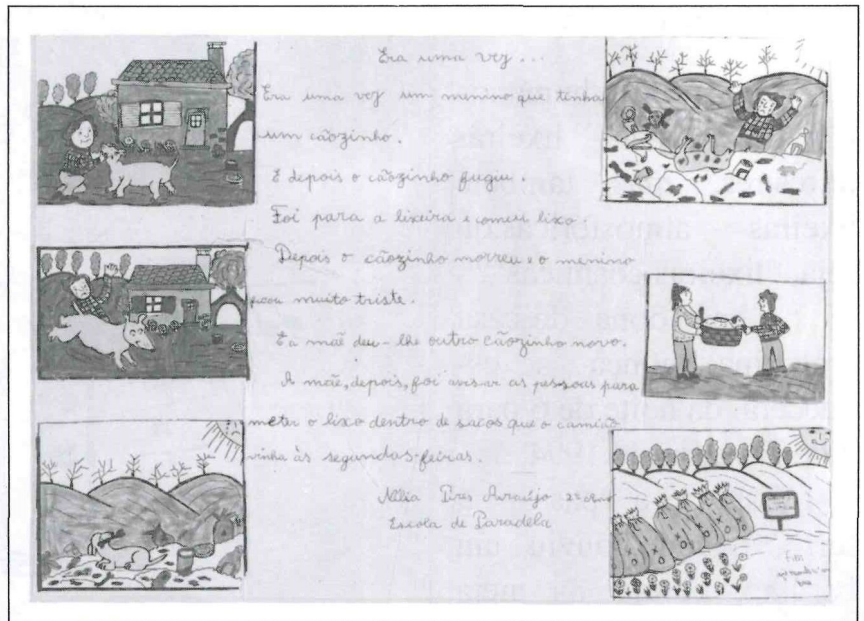 Era uma vez...
Era uma vez um menino que tinha
um cãozinho.
E depois o cãozinho fugiu.
Foi para a lixeira e comeu lixo.
Depois o cãozinho morreu e o menino
ficou muito triste.
E a mãe deu-lhe outro cãozinho novo.
A mãe, depois, foi avisar as pessoas para
meter o lixo dentro de sacos que o camião
vinha às segundas-feiras.
Nélia Pires Araújo 2º ano
Escola de Paradela
Fim